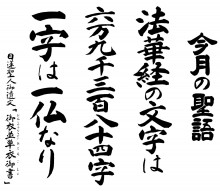 今月の聖語
法華経の文字は
六万九千三百八十四字
一字は一仏なり
日蓮聖人御遺文『御衣並単衣御書』